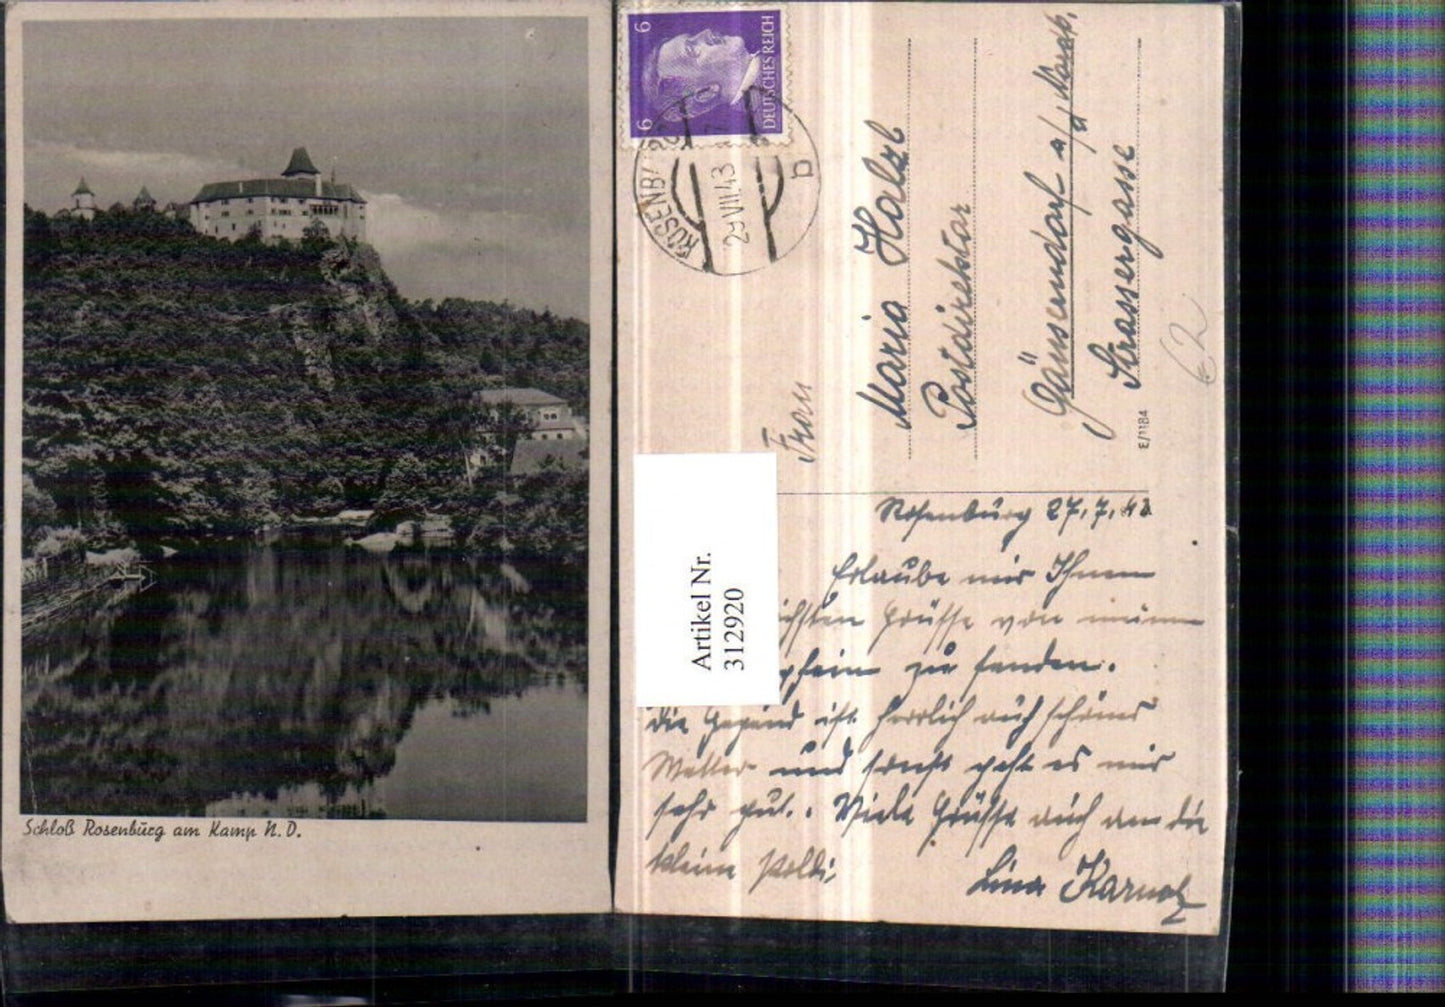 Schloß Rosenburg am Kamp N.D.
6 6
DEUTSCHES REICH
ROSENB
29.VII.43
b
Frau
Maria Holzl
Postdirektor
Gänserndorf a/d Nordb.
Strassergasse
62
E/1184
Artikel Nr.
312920
Rosenburg 27.7.43
Erlaube mir Ihnen
ichsten Grüsse von meinem
zu senden.
Die Gegend ist herrlich auch schönes
Wetter und sonst geht es mir
sehr gut. Viele Grüsse auch an die
kleine Poldi.
Lina Karnetz